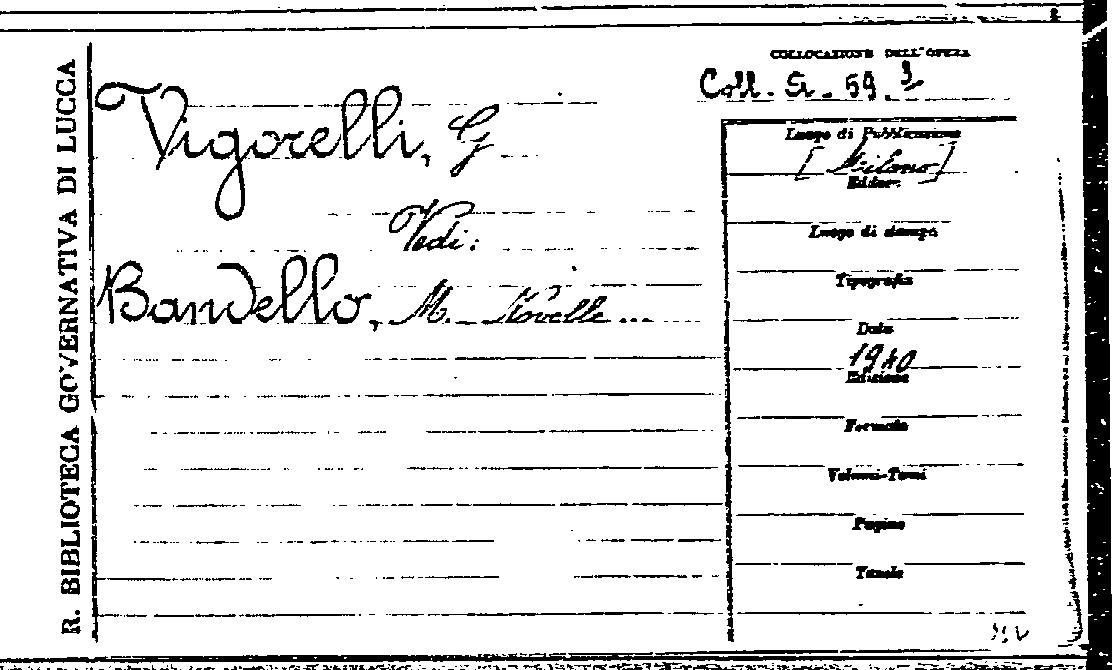 R. BIBLIOTECA GOVERNATIVA DI LUCCA
Vigorelli, G
Vedi:
Bandello, M. Novelle ...
COLLOCAZIONE DELL'OPERA
Coll. Si. 59.
Luogo di Pubblicazione
[Milano]
Editore
Luogo di stampa
Tipografia
Data
1940
Edizione
Formato
Volumi-Tomi
Pagine
Tavole